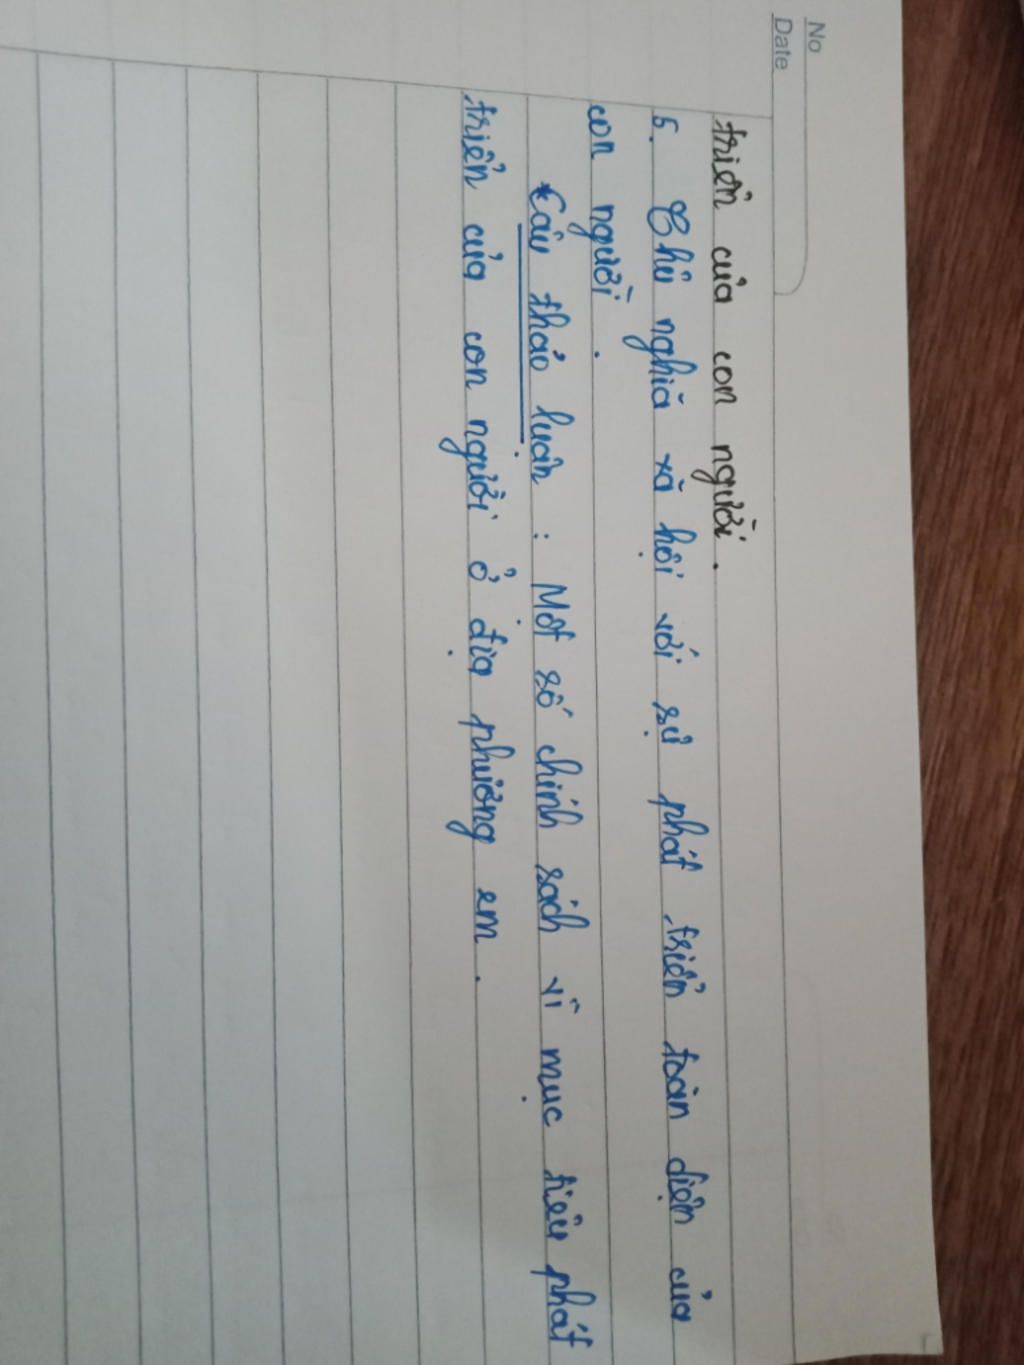 No
Date
triển của con người.
5. Chủ nghĩa xã hội với sự phát triển toàn diện của
con người.
*Câu thảo luận : Một số chính sách vì mục tiêu phát
triển của con người ở địa phương em.